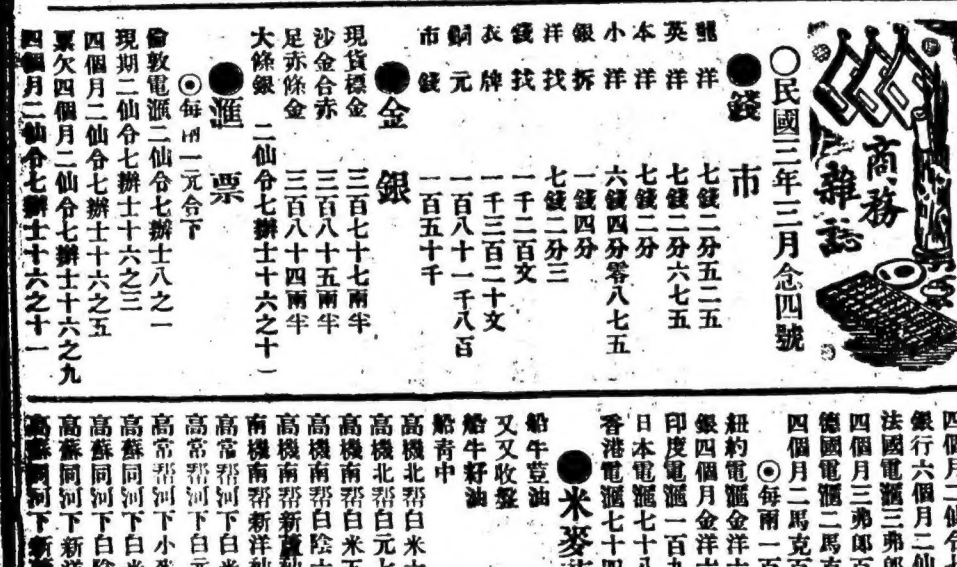 商務
雜誌
○民國三年三月念四號
●錢市
龍洋 七錢二分五二五
英洋 七錢二分六七五
本洋 七錢二分
小洋 六錢四分零八七五
銀拆 一錢四分
洋找 七錢二分三
錢找 一千二百文
衣牌 一千三百二十文
銅元 一百八十一千八百
市錢 一百五十千
●金銀
現貨標金 三百七十七兩半
沙金合赤 三百八十五兩半
足赤條金 三百八十四兩半
大條銀 二仙令七辦士十六之十一
●匯票
◉每兩一元合下
倫敦電匯二仙令七辦士八之一
現期二仙令七辦士十六之三
四個月二仙令七辦士十六之五
票欠四個月二仙令七辦士十六之九
四個月二仙令七辦士十六之十一
四個月二仙令七
銀行六個月二仙
法國電匯三弗郎
四個月三弗郎百
德國電匯二馬克
四個月二馬克百
◉每兩一百
紐約電匯金洋
銀四個月金洋六
印度電匯一百九
日本電匯七十八
香港電匯七十四
●米麥
船牛荳油
又又收盤
船牛籽油
船青中
高機北幇白米
高機北幇白元
高機南幇白米
高機南幇白陰
高機南幇新
南機南幇新洋秈
高常幇河下白米
高常幇河下白元
高常幇河下小
高蘇同河下白米
高蘇同河下白陰
高蘇同河下新洋
高蘇同河下新